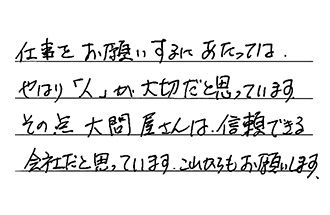 仕事をお願いするにあたっては.
やはり「人」が大切だと思っています
その点 大問屋さんは.信頼できる
会社だと思っています.これからもお願いします.